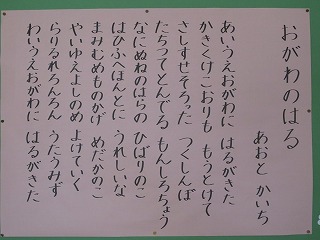 おがわのはる
あおと かいち
あいうえおがわに はるがきた
かきくけこおりも もうとけて
さしすせそろった つくしんぼ
たちつてとんでる もんしろちょう
なにぬねのはらの ひばりのこ
はひふへほんとに うれしいな
まみむめものかげ めだかのこ
やいゆえよしのめ よけていく
らりるれろんろん うたうみず
わいうえおがわに はるがきた